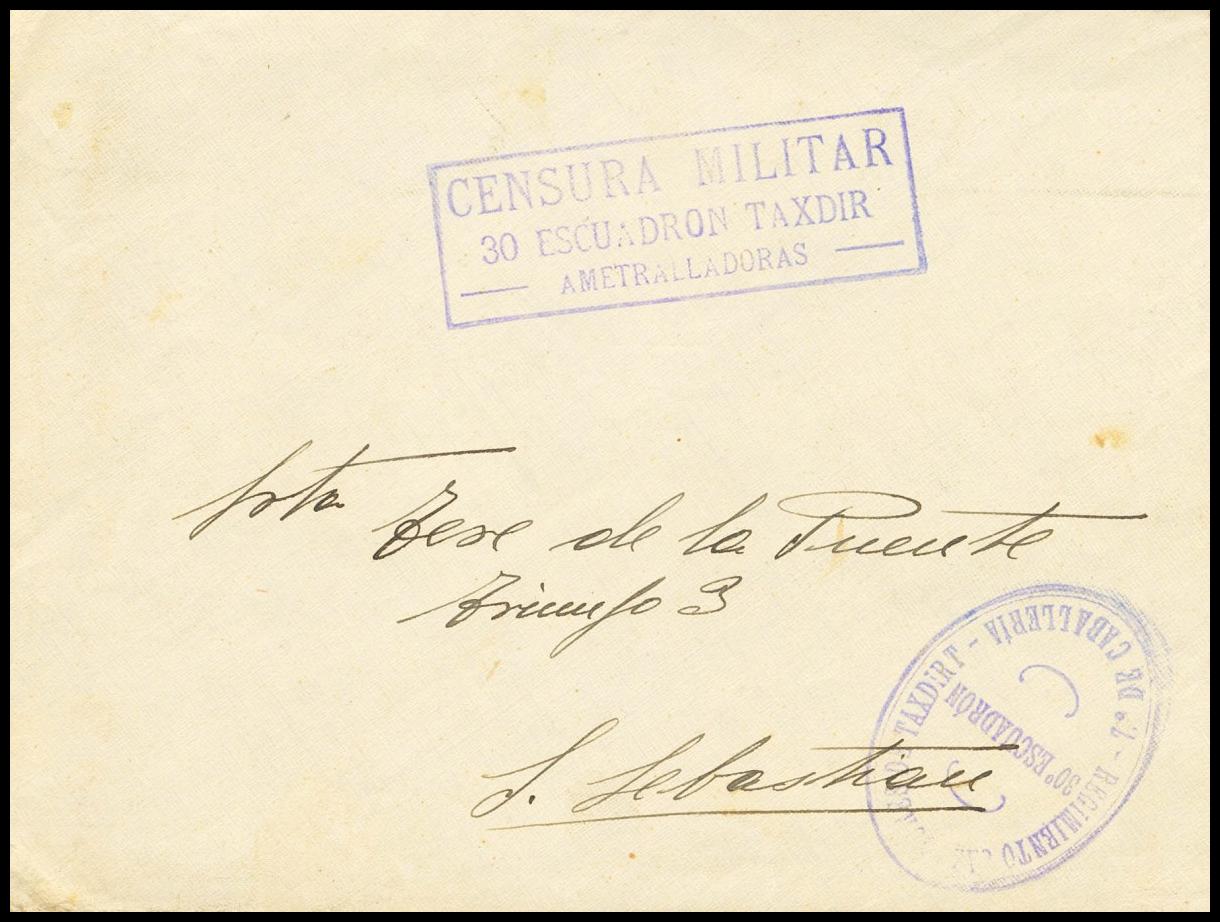 CENSURA MILITAR
30 ESCUADRON TAXDIR
AMETRALLADORAS
Srta Tere de la Puente
Triunfo 3
S. Sebastian
TAXDIRT - 7º DE CABALLERÍA
REGIMIENTO
30º ESCUADRÓN